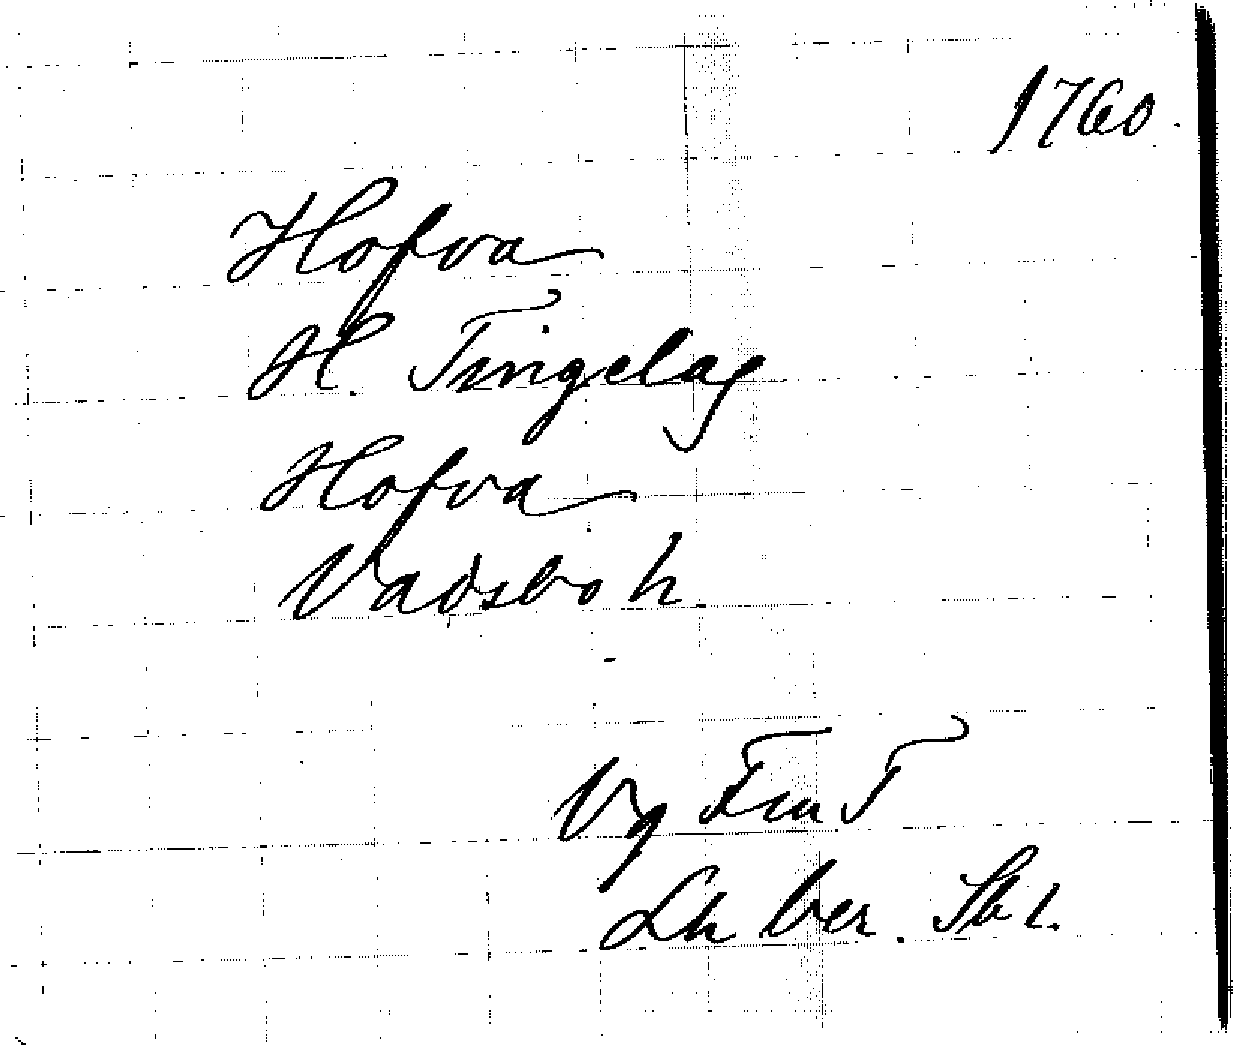 1760.
Hofva
H. Tingelag
Hofva
Vadsbo h
Vg Fm T
Lh ber. Sk 1.